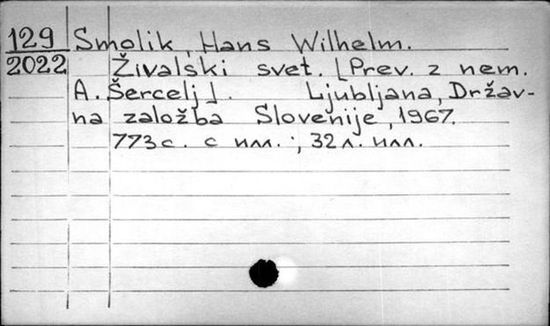 129 Smolik, Hans Wilhelm.
2022 Živalski svet. [Prev. z nem.
A. Šercelj]. Ljubljana, Držav-
na založba Slovenije, 1967.
773 с. с илл.; 32 л. илл.